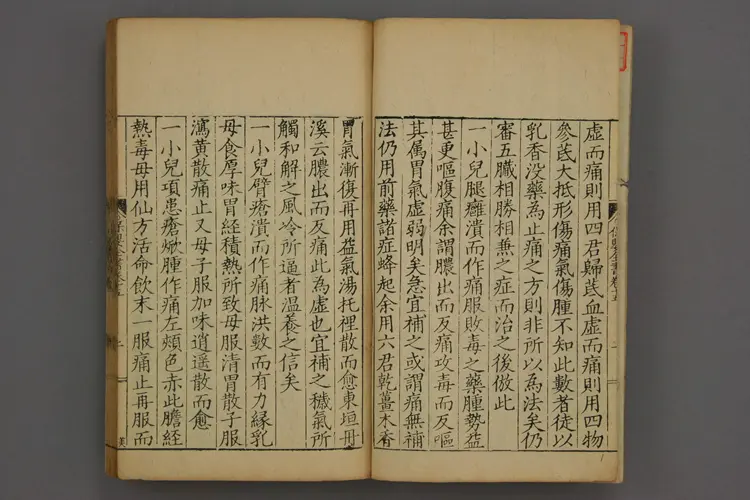 虛而痛則用四君歸芪血虛而痛則用四物
參芪大抵形傷痛氣傷腫不知此數者徒以
乳香没藥為止痛之方則非所以為法矣仍
審五臟相勝相兼之症而治之後倣此
一小兒腿癰潰而作痛服敗毒之藥腫勢益
甚更嘔腹痛余謂膿出而反痛攻毒而反嘔
其属胃氣虛弱明矣急宜補之或謂痛無補
法仍用前藥諸症蜂起余用六君乾薑木香
胃氣漸復再用益氣湯托裡散而愈東垣丹
溪云膿出而反痛此為虛也宜補之穢氣所
觸和解之風冷所逼者温養之信矣
一小兒臂瘡潰而作痛脉洪數而有力縁乳
母食厚味胃經積熱所致母服清胃散子服
瀉黄散痛止又母子服加味逍遥散而愈
一小兒項患瘡焮腫作痛左頰色赤此膽經
熱毒毋用仙方活命飲末一服痛止再服而